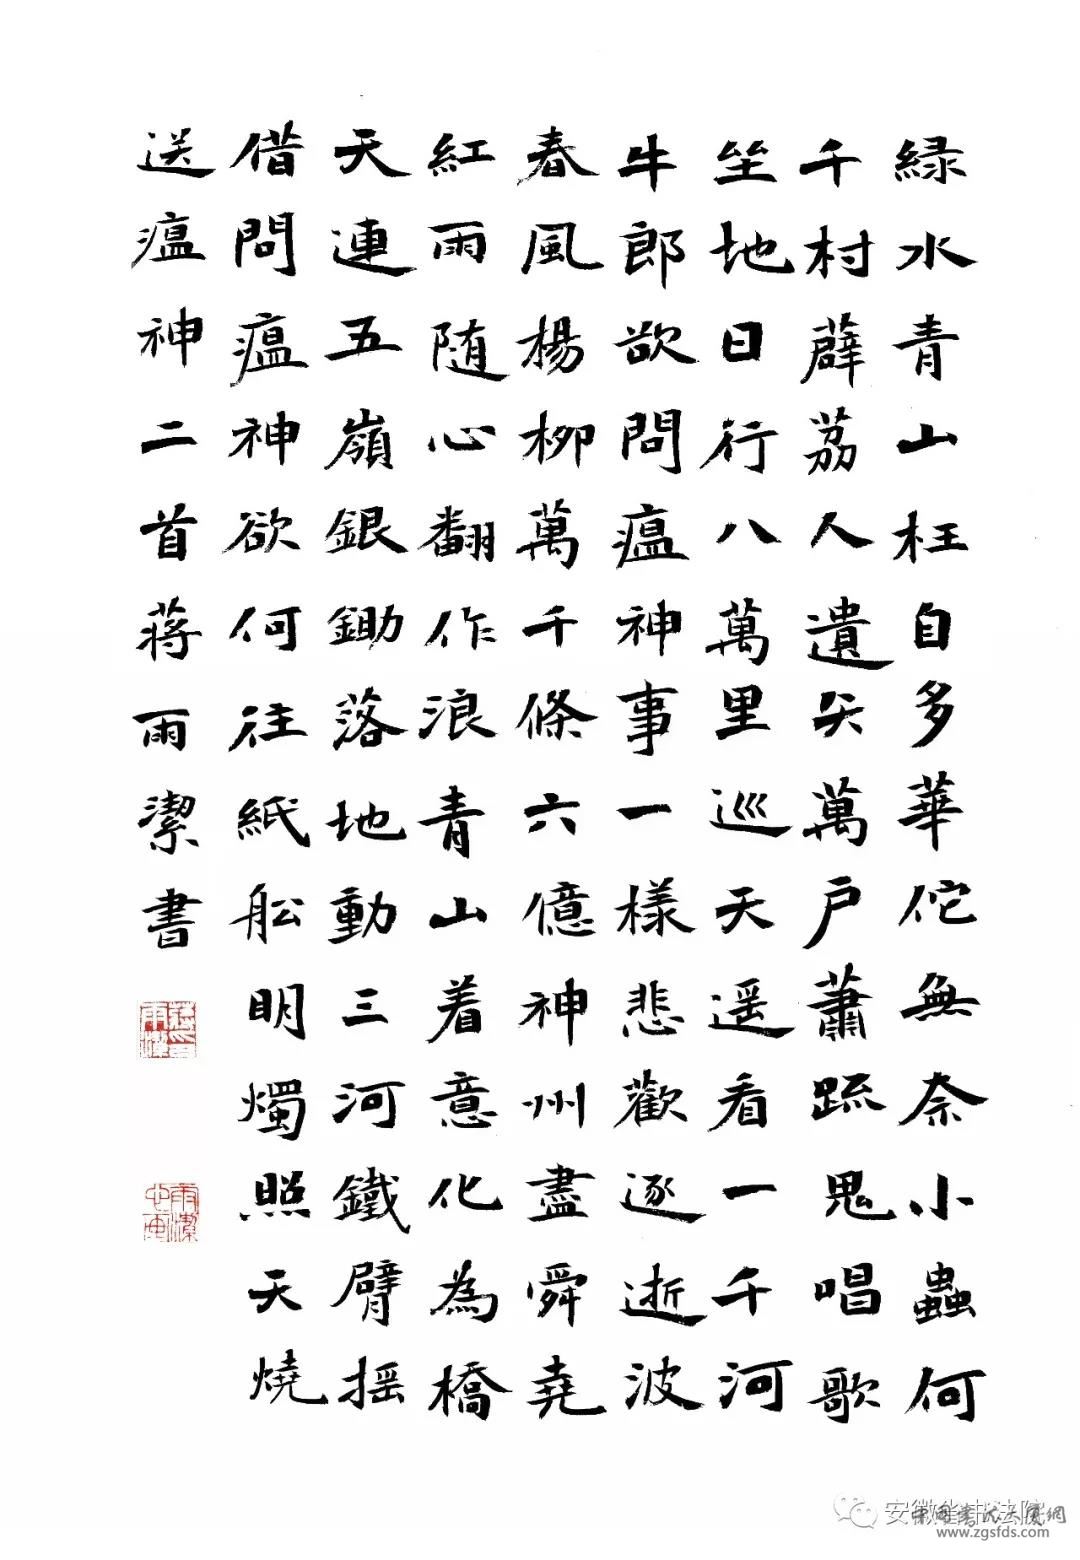 緑水青山枉自多華佗無奈小蟲何
千村薜荔人遺矢萬户蕭疏鬼唱歌
坐地日行八萬里巡天遥看一千河
牛郎欲問瘟神事一樣悲歡逐逝波
春風楊柳萬千條六億神州盡舜堯
紅雨随心翻作浪青山着意化為橋
天連五嶺銀鋤落地動三河鐵臂摇
借問瘟神欲何往紙船明燭照天燒
送瘟神二首蔣雨潔書
安徽省书法院
www.zgsfds.com